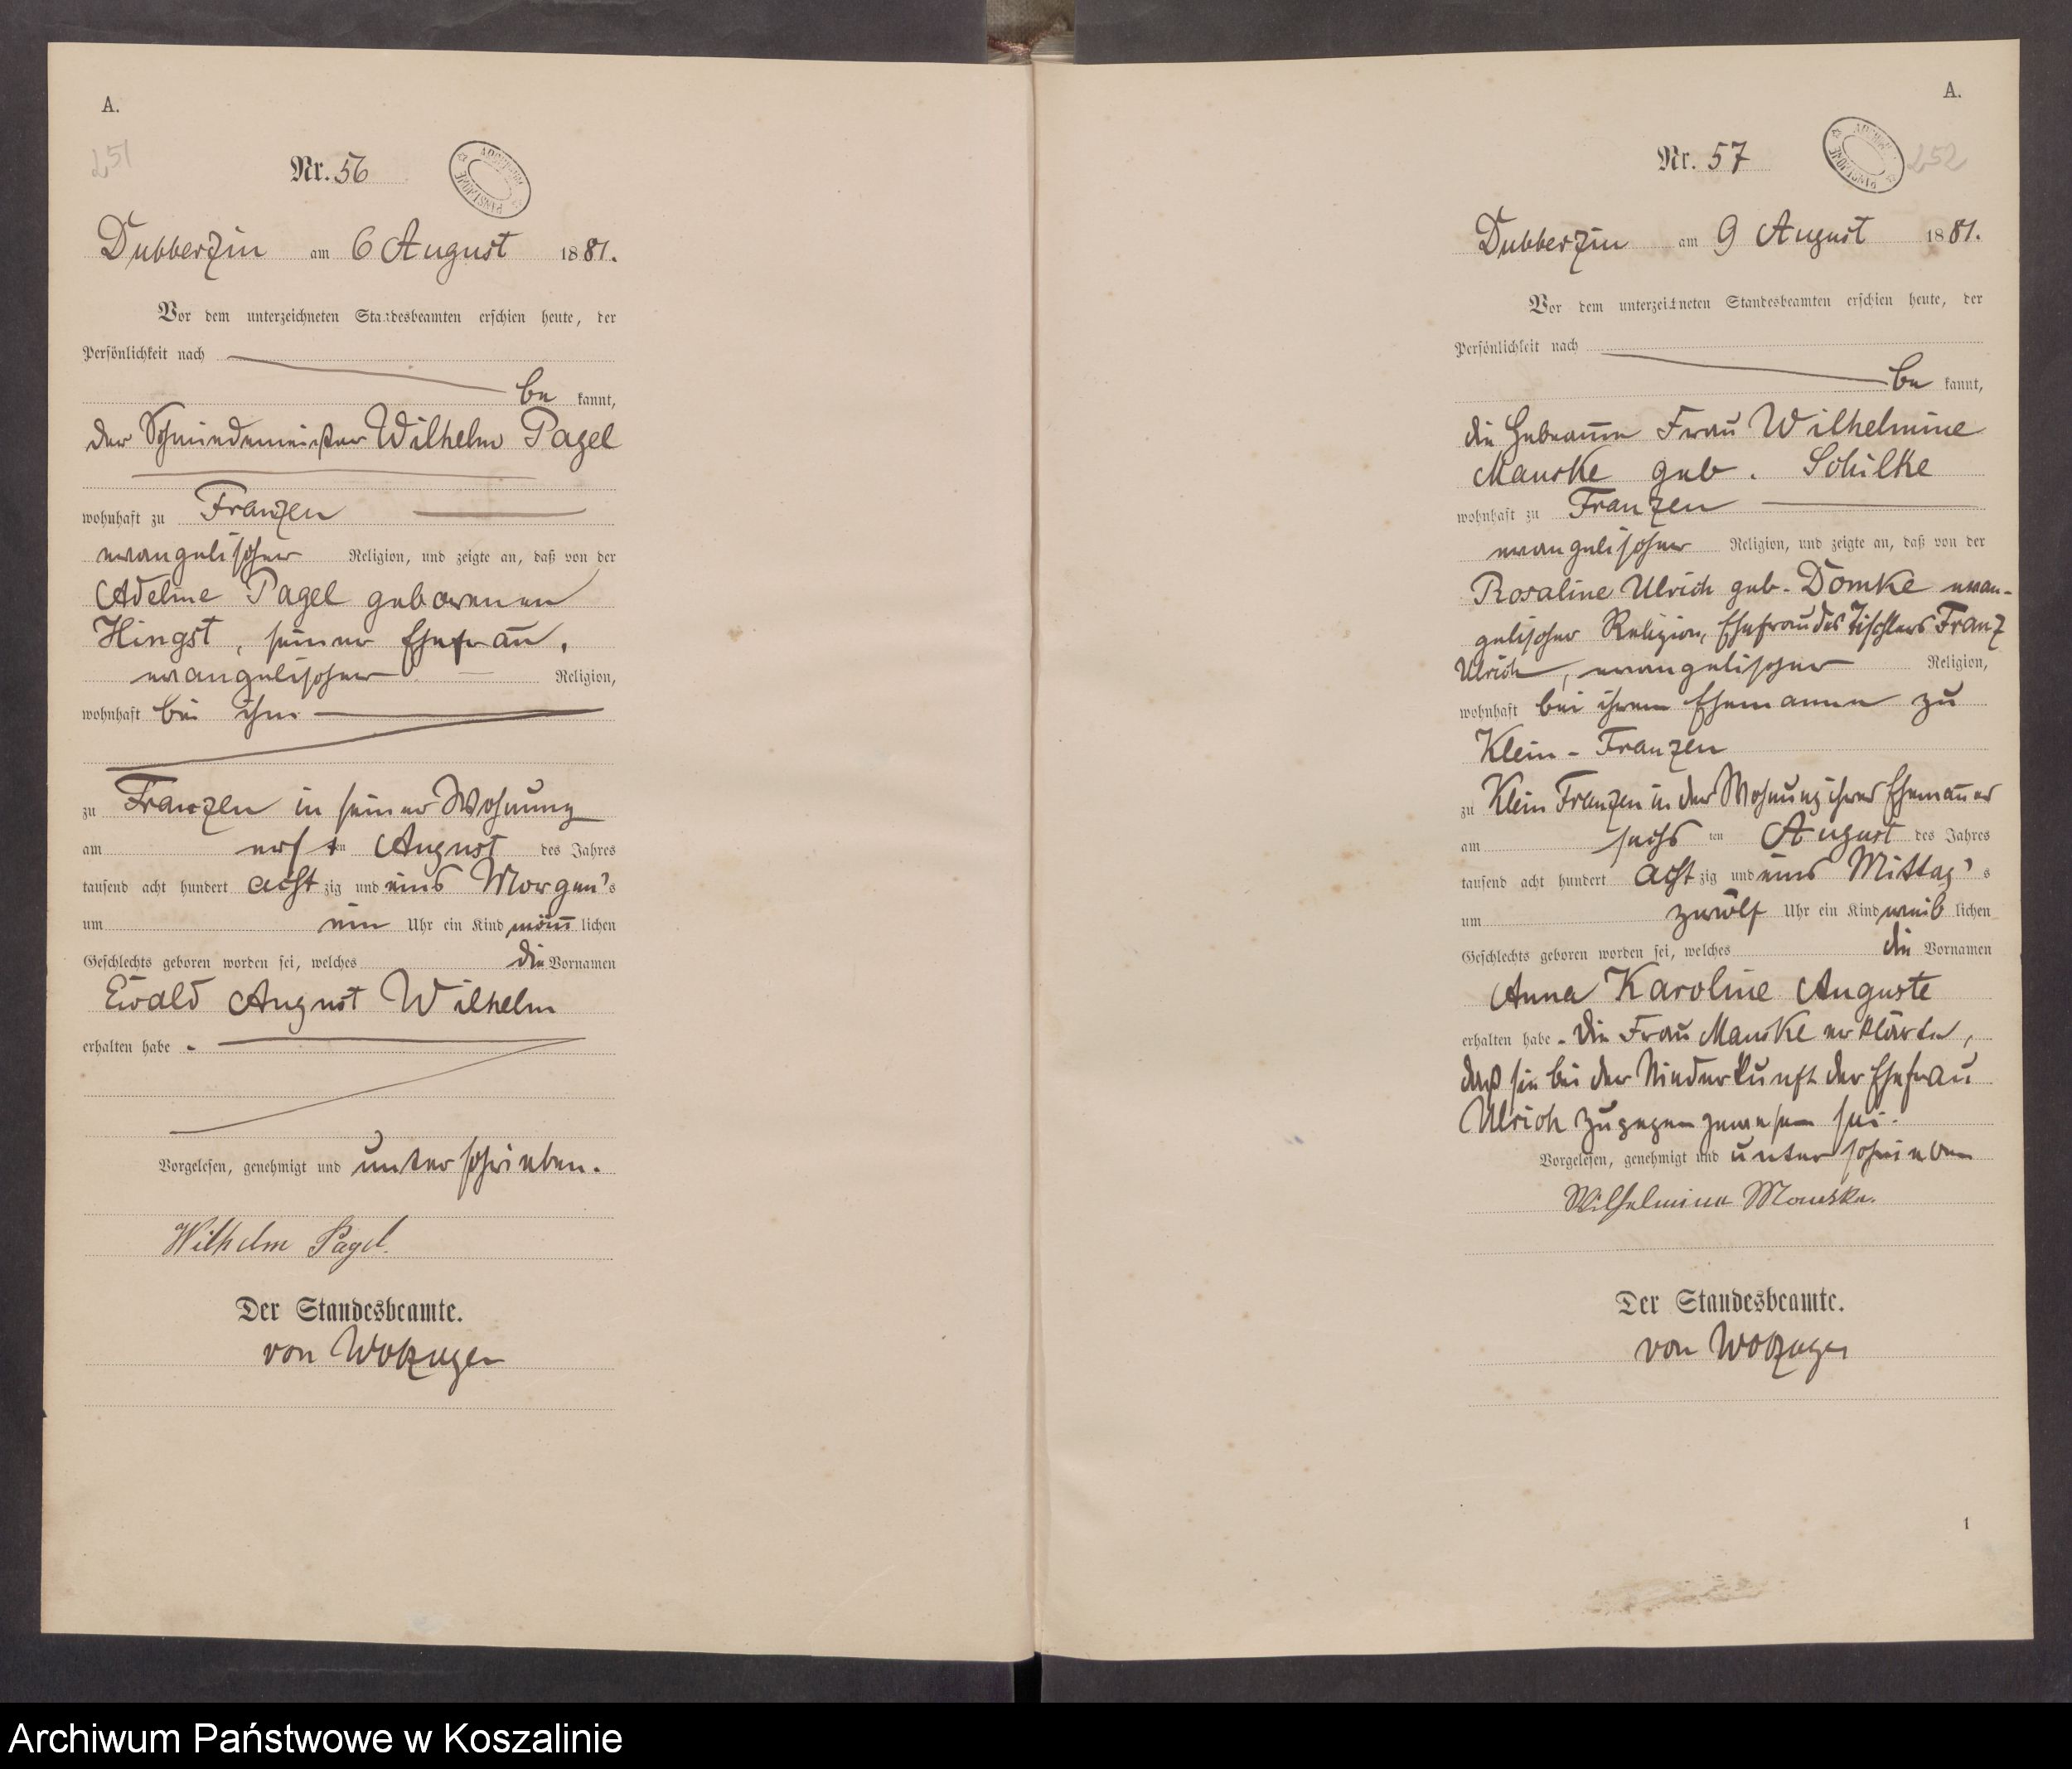 A.
251
Nr. 56
Dubberzin am 6 August 1881.
Vor dem unterzeichneten Standesbeamten erschien heute, der
Persönlichkeit nach
be kannt,
der Schmiedemeister Wilhelm Pagel
wohnhaft zu Franzen
evangelischer Religion, und zeigte an, daß von der
Adeline Pagel geborenen
Hingst, seiner Ehefrau,
evangelischer Religion,
wohnhaft bei ihm
zu Franzen in seiner Wohnung
am ersten August des Jahres
tausend acht hundert achtzig und eins Morgen's
um ein Uhr ein Kind männlichen
Geschlechts geboren worden sei, welches die Vornamen
Ewald August Wilhelm
erhalten habe.
Vorgelesen, genehmigt und unterschrieben.
Wilhelm Pagel.
Der Standesbeamte.
von
A.
252
Nr. 57
Dubberzin am 9 August 1881.
Vor dem unterzeichneten Standesbeamten erschien heute, der
Persönlichkeit nach
be kannt,
die Hebeamme Frau Wilhelmine
Manske geb. Schilke
wohnhaft zu Franzen
evangelischer Religion, und zeigte an, daß von der
Rosaline Ulrich geb. Domke evan-
gelischer Religion, Ehefrau des Tischlers Franz
Ulrich, evangelischer Religion,
wohnhaft bei ihrem Ehemanne zu
Klein-Franzen
zu Klein Franzen in der Wohnung ihres Ehemannes
am sechsten August des Jahres
tausend acht hundert achtzig und eins Mittag's
um zwölf Uhr ein Kind weiblichen
Geschlechts geboren worden sei, welches die Vornamen
Anna Karoline Auguste
erhalten habe. Die Frau Manske erklärte,
daß sie bei der Niederkunft der Ehefrau
Ulrich zugegen gewesen sei.
Vorgelesen, genehmigt und unterschrieben
Wilhelmine Manske.
Der Standesbeamte.
von
1
Archiwum Państwowe w Koszalinie